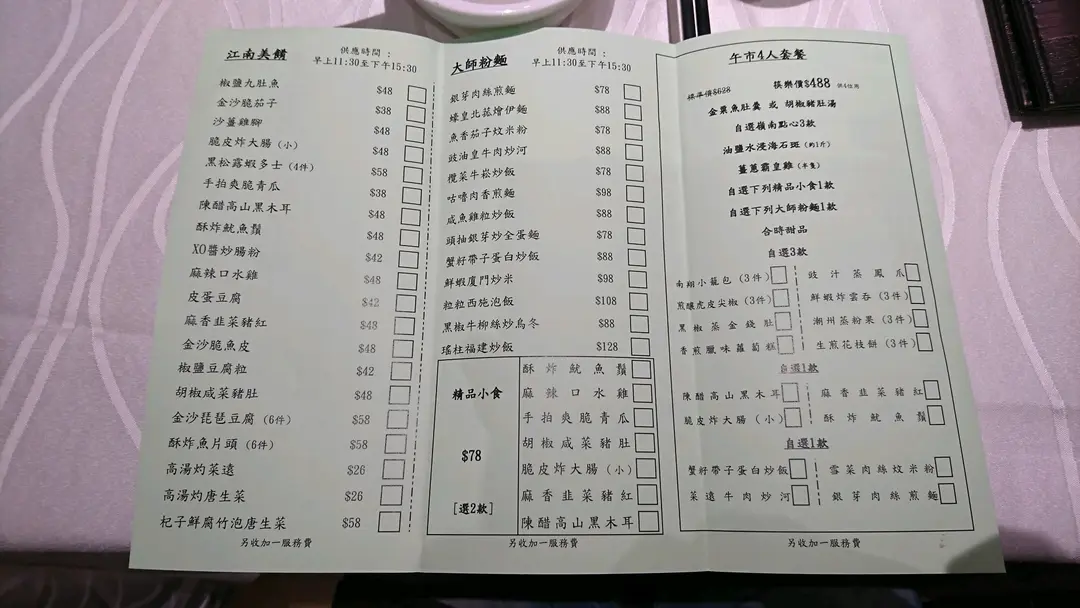 江南美饌
供應時間：
早上11:30至下午15:30
椒鹽九肚魚 $48
金沙脆茄子 $38
沙薑雞腳 $48
脆皮炸大腸 (小) $48
黑松露蝦多士 (4件) $58
手拍爽脆青瓜 $38
陳醋高山黑木耳 $48
酥炸魷魚鬚 $48
XO醬炒腸粉 $42
麻辣口水雞 $48
皮蛋豆腐 $42
麻香韭菜豬紅 $48
金沙脆魚皮 $48
椒鹽豆腐粒 $42
胡椒咸菜豬肚 $48
金沙琵琶豆腐 (6件) $58
酥炸魚片頭 (6件) $58
高湯灼菜遠 $26
高湯灼唐生菜 $26
杞子鮮腐竹泡唐生菜 $58
另收加一服務費
大師粉麵
供應時間：
早上11:30至下午15:30
銀芽肉絲煎麵 $78
蠔皇北菰燴伊麵 $88
魚香茄子炆米粉 $78
豉油皇牛肉炒河 $88
欖菜牛崧炒飯 $78
咕嚕肉香煎麵 $98
咸魚雞粒炒飯 $88
頭抽銀芽炒全蛋麵 $78
蟹籽帶子蛋白炒飯 $88
鮮蝦廈門炒米 $98
粒粒西施泡飯 $108
黑椒牛柳絲炒烏冬 $88
瑤柱福建炒飯 $128
精品小食
$78
[選2款]
酥炸魷魚鬚
麻辣口水雞
手拍爽脆青瓜
胡椒咸菜豬肚
脆皮炸大腸 (小)
麻香韭菜豬紅
陳醋高山黑木耳
午市4人套餐
標準價$628 筷樂價$488 供4位用
金粟魚肚羹 或 胡椒豬肚湯
自選嶺南點心3款
油鹽水浸海石斑 (約1斤)
薑蔥霸皇雞 (半隻)
自選下列精品小食1款
自選下列大師粉麵1款
合時甜品
自選3款
南翔小籠包 (3件) 豉汁蒸鳳爪
煎釀虎皮尖椒 (3件) 鮮蝦炸雲吞 (3件)
黑椒蒸金錢肚 潮州蒸粉果 (3件)
香煎臘味蘿蔔糕 生煎花枝餅 (3件)
自選1款
陳醋高山黑木耳 麻香韭菜豬紅
脆皮炸大腸 (小) 酥炸魷魚鬚
自選1款
蟹籽帶子蛋白炒飯 雪菜肉絲炆米粉
菜遠牛肉炒河 銀芽肉絲煎麵
另收加一服務費